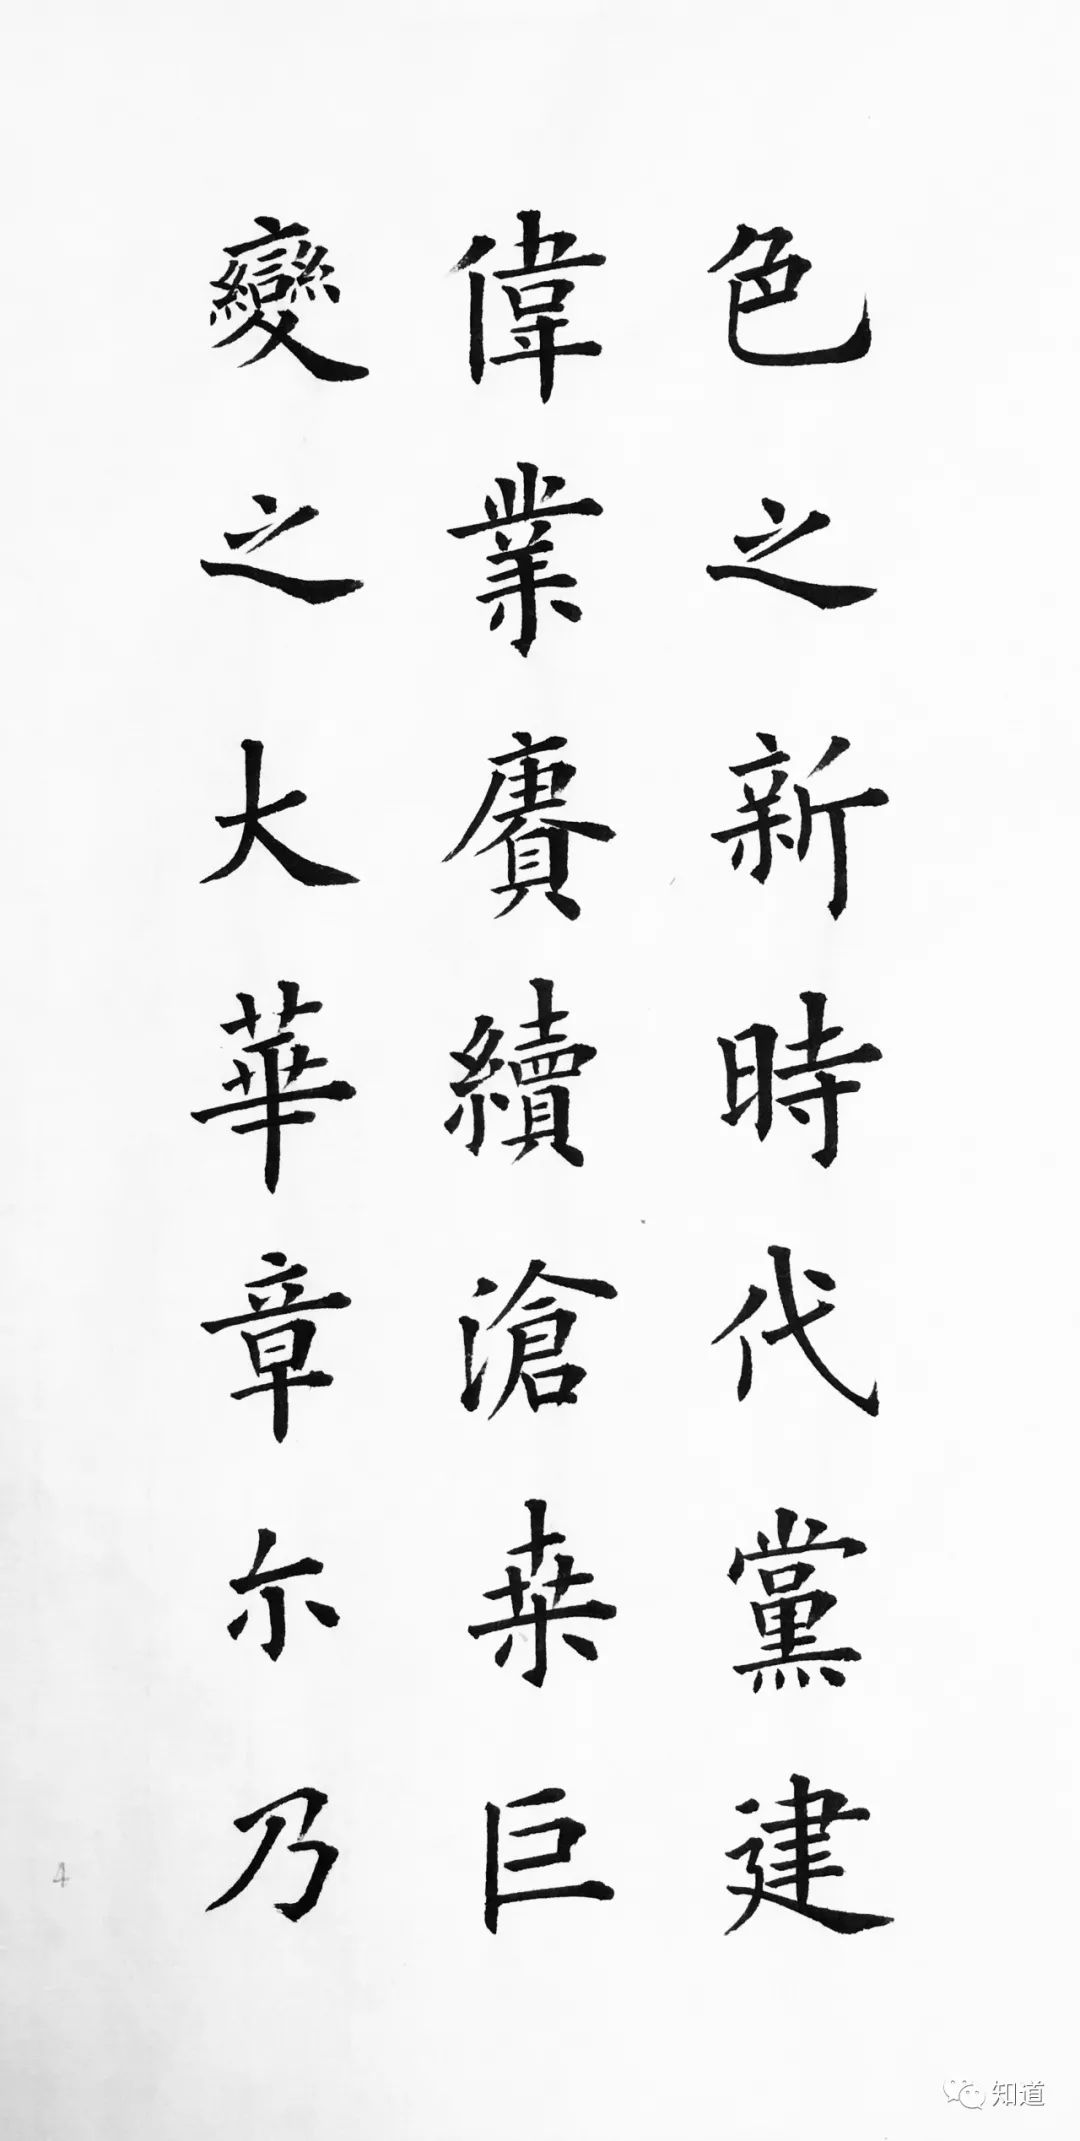 色之新時代黨建
偉業賡續滄桒巨
變之大華章尒乃
4
知道